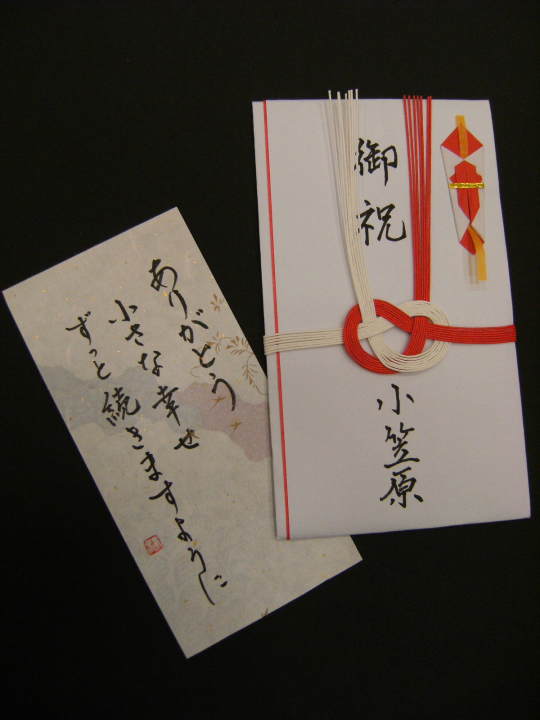 御祝
小笠原
ありがとう
小さな幸せ
ずっと続きますように